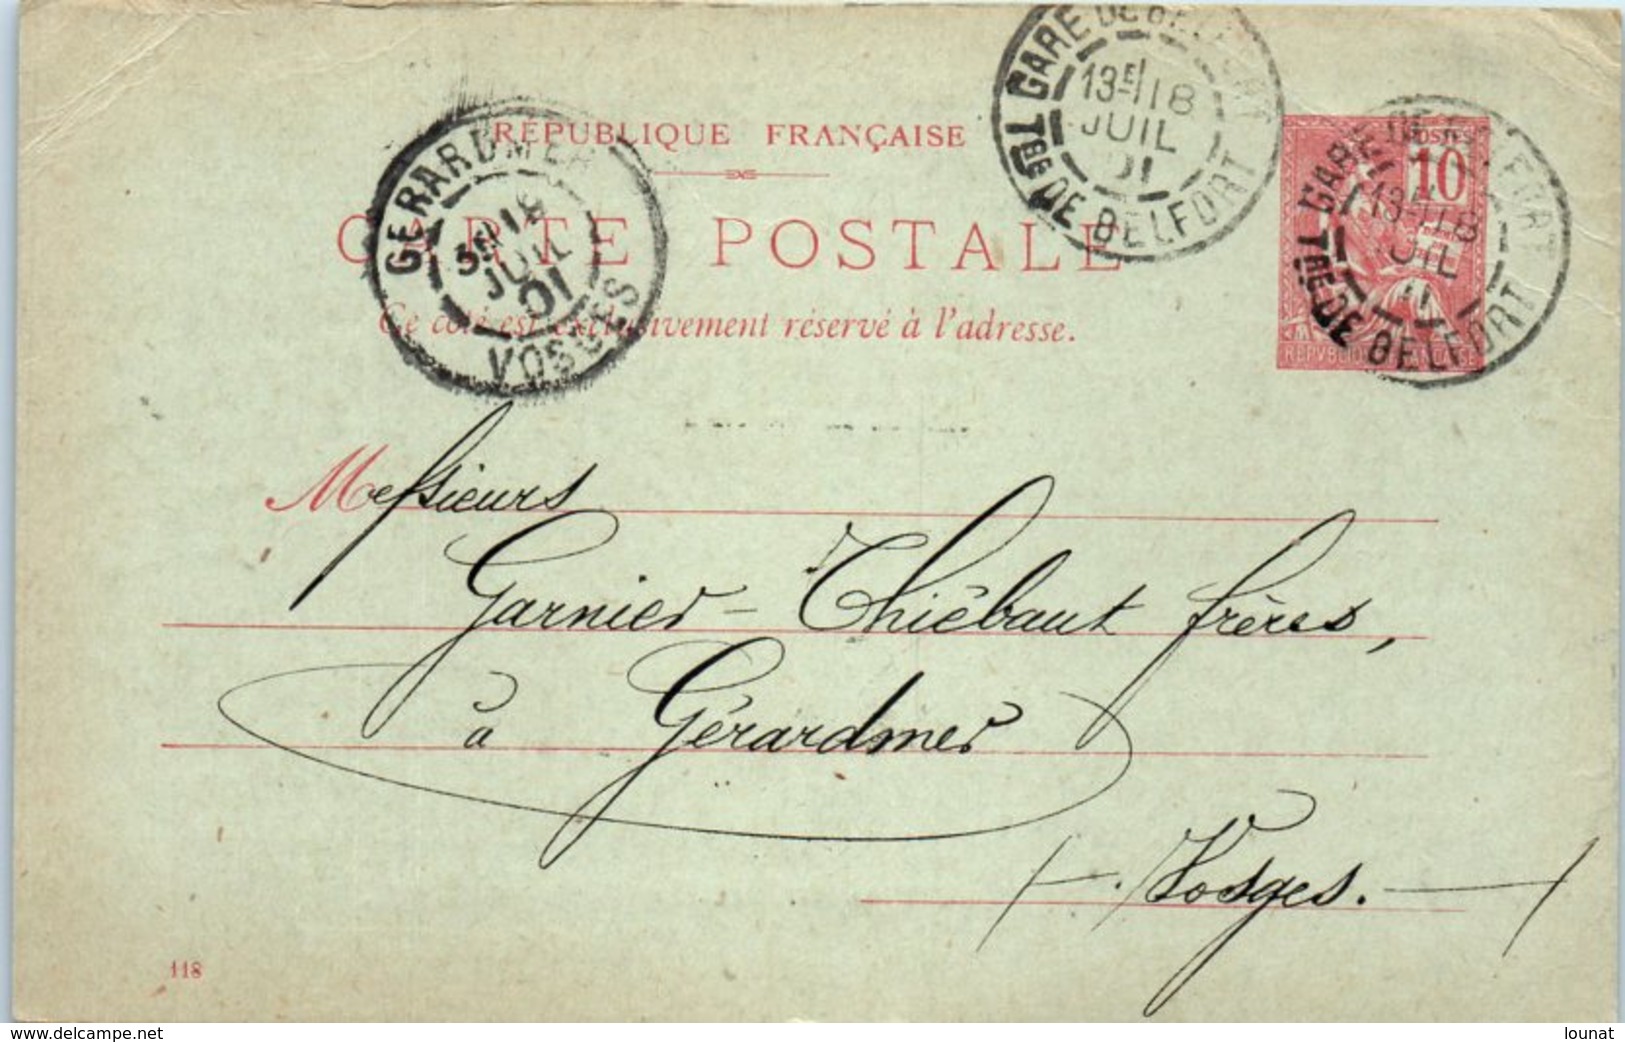 RÉPUBLIQUE FRANÇAISE
CARTE POSTALE
Ce côté est exclusivement réservé à l'adresse.
GERARDMER
18
JUIL
01
VOSGES
GARE DE BELFORT
13E 18
JUIL
01
TRE DE BELFORT
POSTES
10
REPVBLIQUE FRANÇAISE
GARE DE BELFORT
13E 18
JUIL
TRE DE BELFORT
Messieurs
Garnier-Thiébaut frères,
à Gérardmer
Vosges.
118
www.delcampe.net
lounat